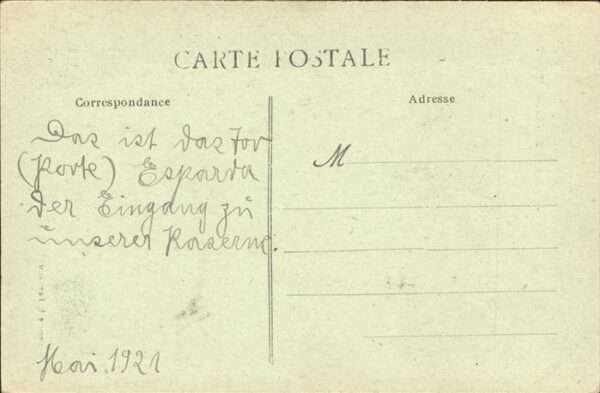 CARTE POSTALE
Correspondance
Adresse
Das ist das Tor
(Porte) Esparda
der Eingang zu
unserer Kaserne.
M
Mai. 1921